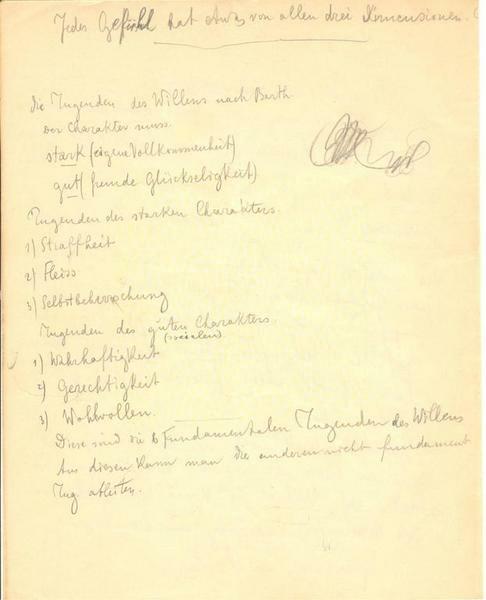 Jedes Gefühl hat etwas von allen drei Dimensionen.
Die Tugenden des Willens nach Barth
Der Charakter muss
stark (eigene Vollkommenheit)
gut (fremde Glückseligkeit)
Tugenden des starken Charakters.
1) Straffheit
2) Fleiss
3) Selbstbeherrschung
Tugenden des guten Charakters.
(sozialen)
1) Wahrhaftigkeit
2) Gerechtigkeit
3) Wohlwollen.
Diese sind die 6 Fundamentalen Tugenden des Willens
Aus diesen kann man die anderen nicht fundament
Tug. ableiten.